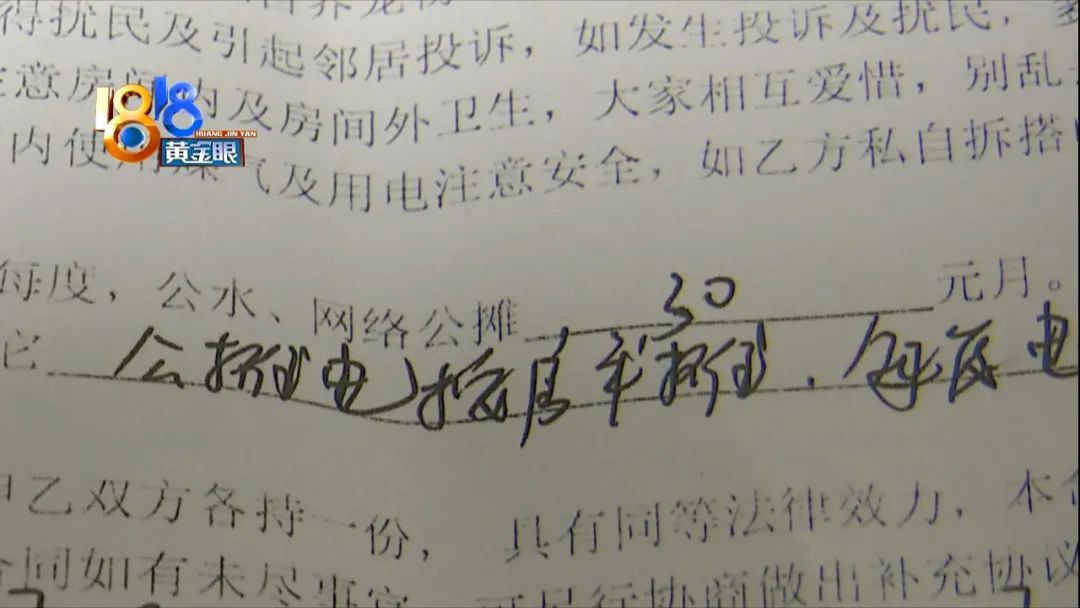 得扰民及引起邻居投诉，如发生投诉及扰民，
意房间内及房间外卫生，大家相互爱惜，别乱
内使用煤气及用电注意安全，如乙方私自拆搭
每度，公水、网络公摊30元月。
它公摊电按房平摊．每度电
甲乙双方各持一份，具有同等法律效力，本
合同如有未尽事宜，可另行协商做出补充协议
1818
HUANG JIN YAN
黄金眼